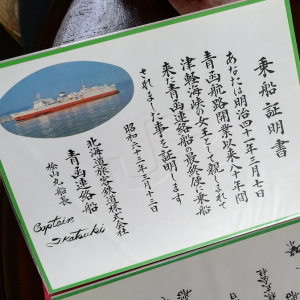 乗船証明書
あなたは明治四十一年三月七日
青函航路開業以来八十年間
津軽海峡の女王として親しまれて
来た青函連絡船の最終便に乗船
されました事を証明します
昭和六十三年三月十三日
北海道旅客鉄道株式会社
青函連絡船
桧山丸船長
Captain